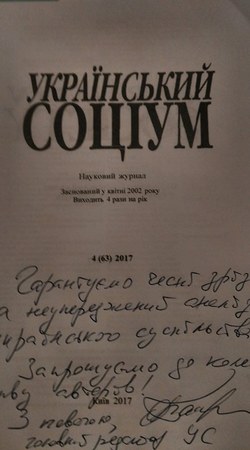 УКРАЇНСЬКИЙ
СОЦІУМ
Науковий журнал
Заснований у квітні 2002 року
Виходить 4 рази на рік
4 (63) 2017
Гарантуємо чесні
та неупереджений аналіз
українського суспільства
Запрошуємо до
авторів!
Київ 2017
З повагою,
головний редактор УС